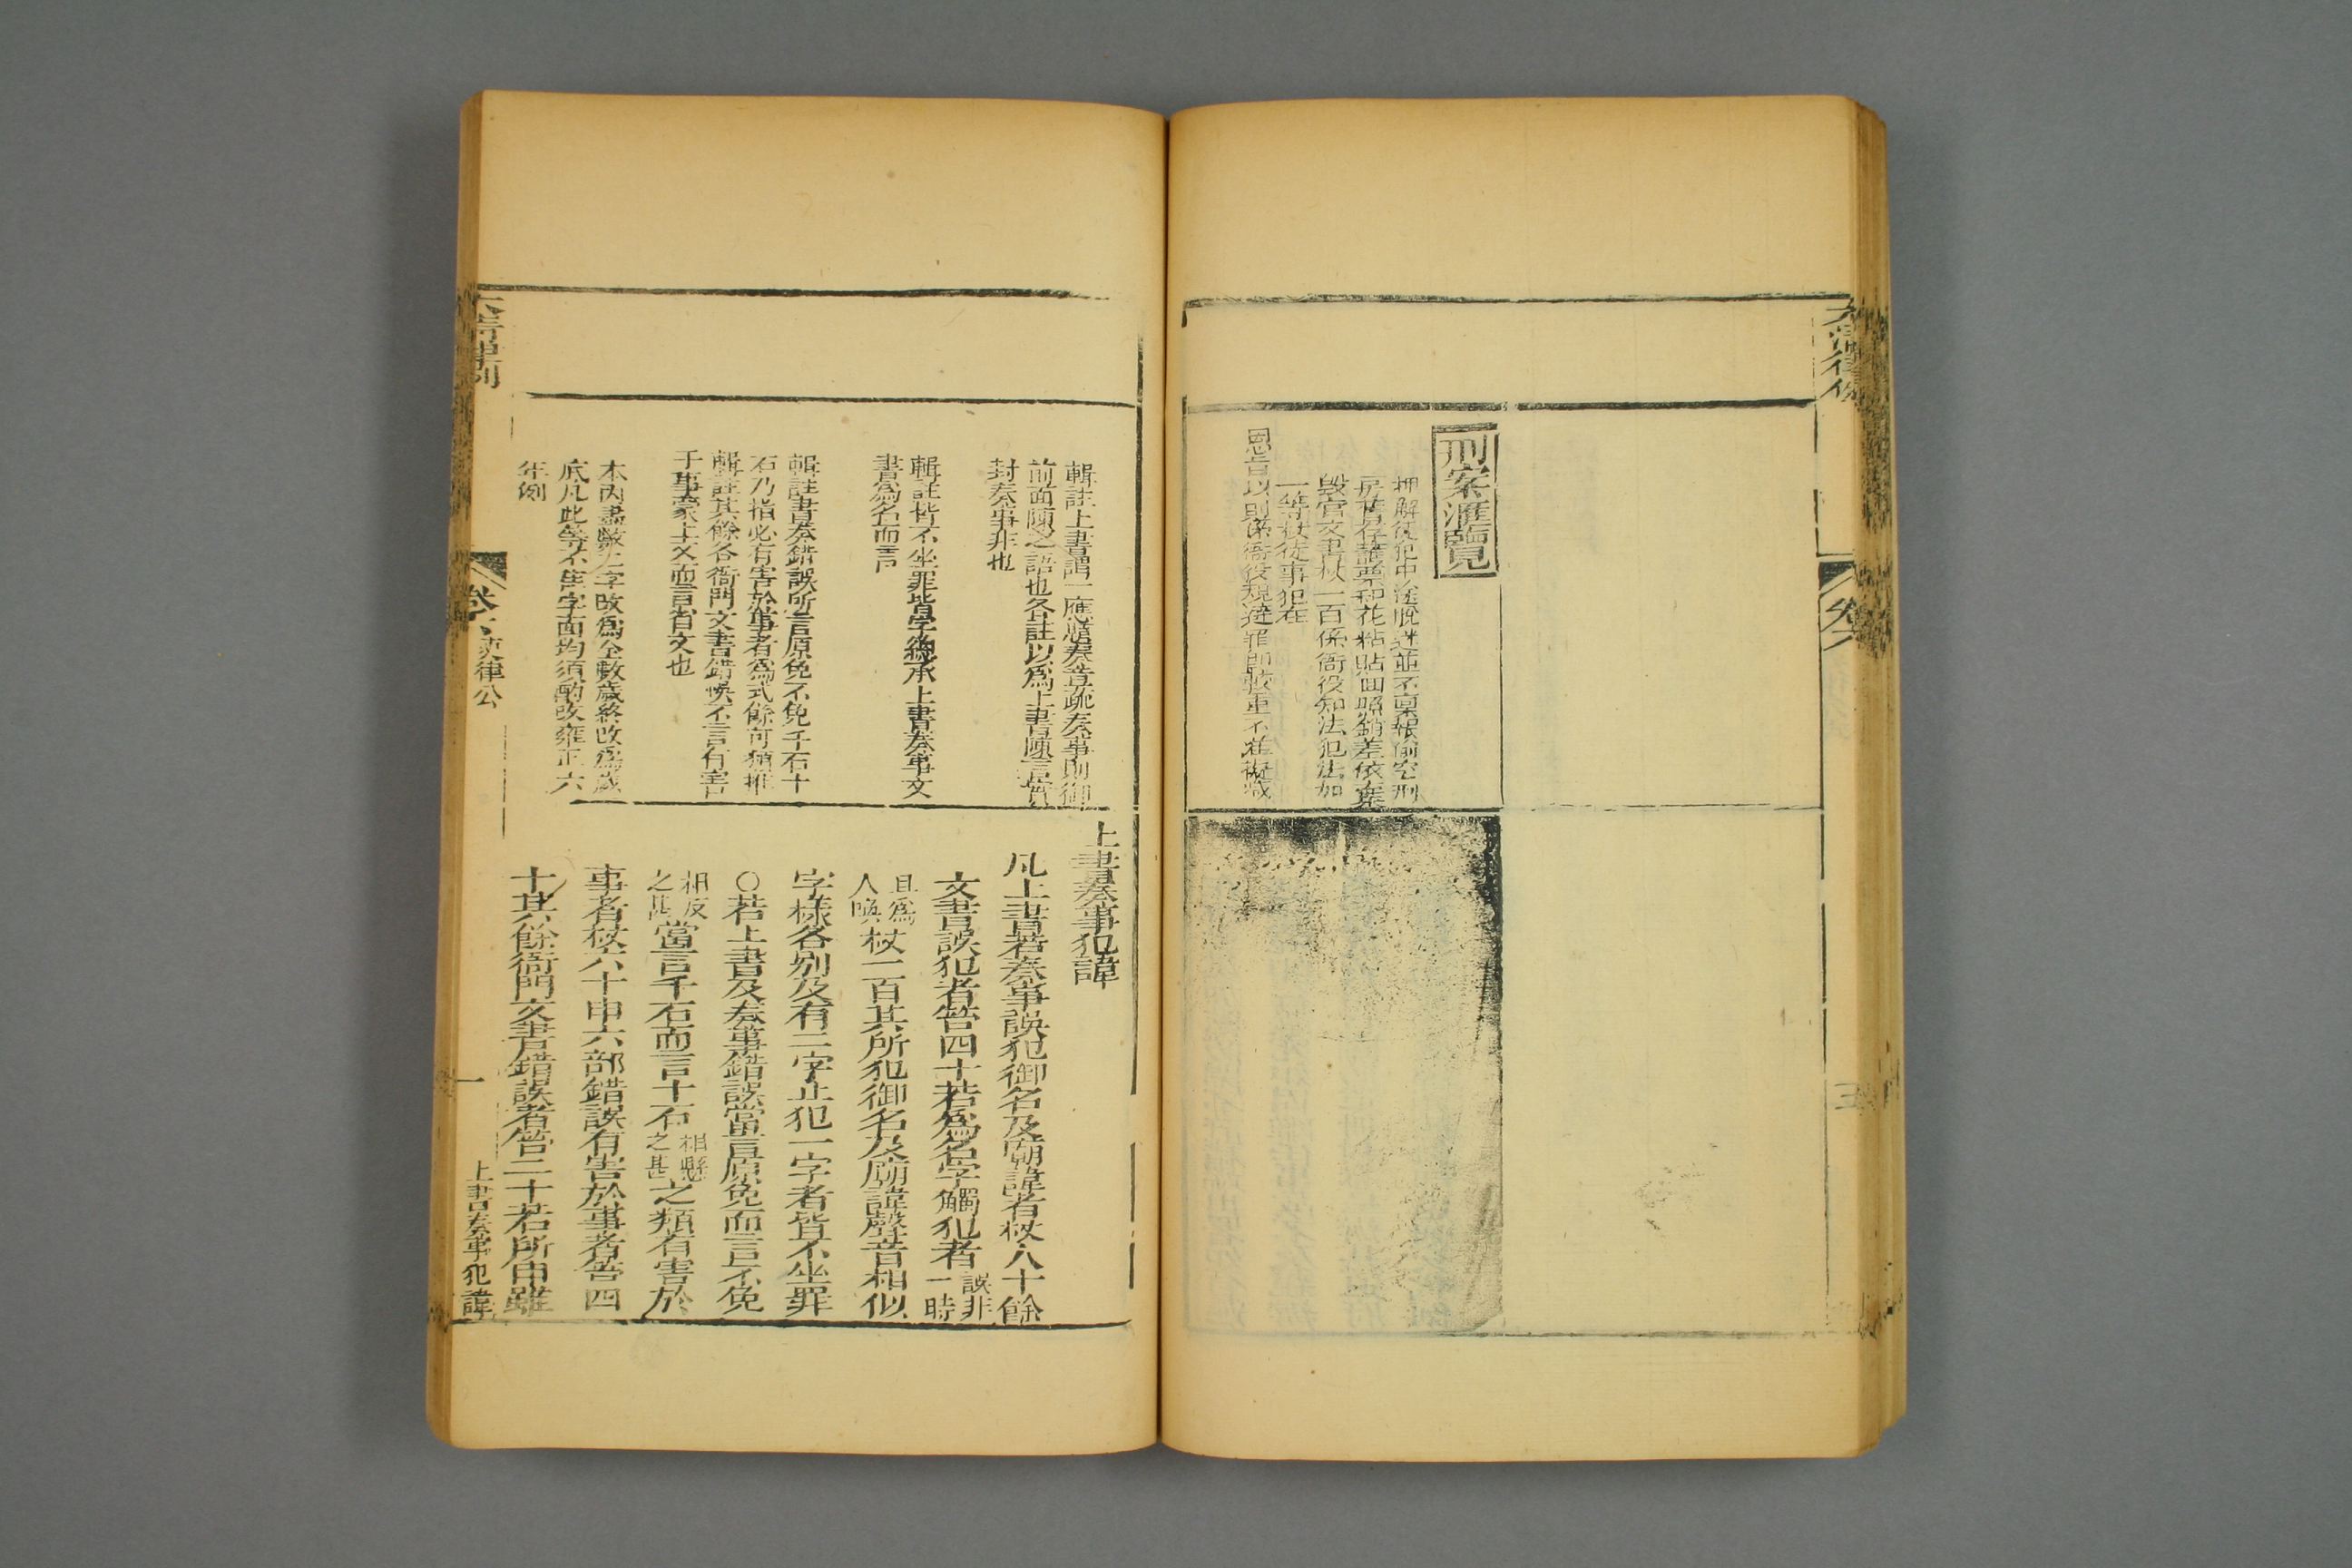 大清律例
卷六
三
刑案滙覽
押解徒犯中途脫逃並不稟報偷空刑
房舊存護票印花粘貼回照銷差依棄
毀官文書杖一百係衙役知法犯法加
一等杖徒事犯在
恩旨以前係衙役規避罪即較重不准援減
上書奏事犯諱
凡上書若奏事誤犯御名及廟諱者杖八十餘
文書誤犯者笞四十若爲名字觸犯者誤非一時
且爲人喚杖一百其所犯御名及廟諱聲音相似
字樣各別及有二字止犯一字者皆不坐罪
○若上書及奏事錯誤當言原免而言不免
相反之甚當言千石而言十石相懸之甚之類有害於
事者杖六十申六部錯誤有害於事者笞四
十其餘衙門文書錯誤者笞二十若所申雖
輯註上書謂一應題奏章疏奏事則御
前面陳之語也各註以爲上書陳言實
封奏事非也
輯註皆不坐罪皆字總承上書奏事文
書爲名而言
輯註書奏錯誤所言原免不免千石十
石乃指必有害於事者爲式餘可類推
輯註其餘各衙門文書錯悞不言有害
于事蒙上文而言省文也
本內盡數二字改爲全數歲終改爲歲
底凡此等不吉字面均須酌改雍正六
年例
大清律例
卷六
吏律公
一
上書奏事犯諱